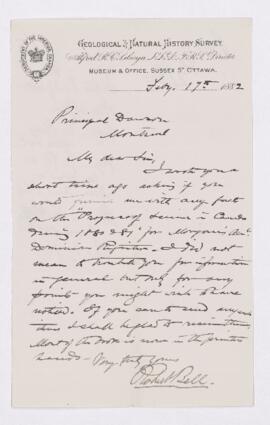 GEOLOGICAL & NATURAL HISTORY SURVEY.
Alfred R. C. Selwyn L.L.D. F.R.S. Director
MUSEUM & OFFICE, SUSSEX ST OTTAWA.
Feby. 17th 1882
Principal Dawson
Montreal
My dear Sir,
I wrote you a
short time ago asking if you
would furnish me with any facts
on the "Progress of Science in Canada
during 1880 & 81" for Morgan's Ann.
Dominion Register. I did not
mean to trouble you for information
in general but only for any
points you might wish to have
noted. If you can send any
this I shall be glad to receive
Most of the book is now in the printers
hands - Very truly yours
Robert Bell.